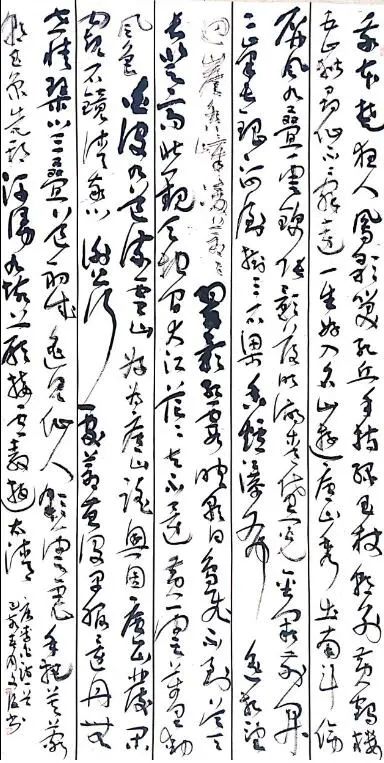 我本楚狂人鳳歌笑孔丘手持綠玉杖朝別黃鶴樓
五岳尋仙不辭遠一生好入名山遊廬山秀出南斗傍
屏風九疊雲錦張影落明湖青黛光金闕前開
二峰長銀河倒掛三石梁香爐瀑布遙相望
迴崖沓嶂凌蒼蒼翠影紅霞映朝日鳥飛不到吳天
長登高壯觀天地間大江茫茫去不還黃雲萬里動
風色白波九道流雪山好為廬山謠興因廬山發閑
窺石鏡清我心謝公行處蒼苔沒早服還丹無
世情琴心三疊道初成遙見仙人彩雲裏手把芙蓉
朝玉京先期汗漫九垓上願接盧敖遊太清